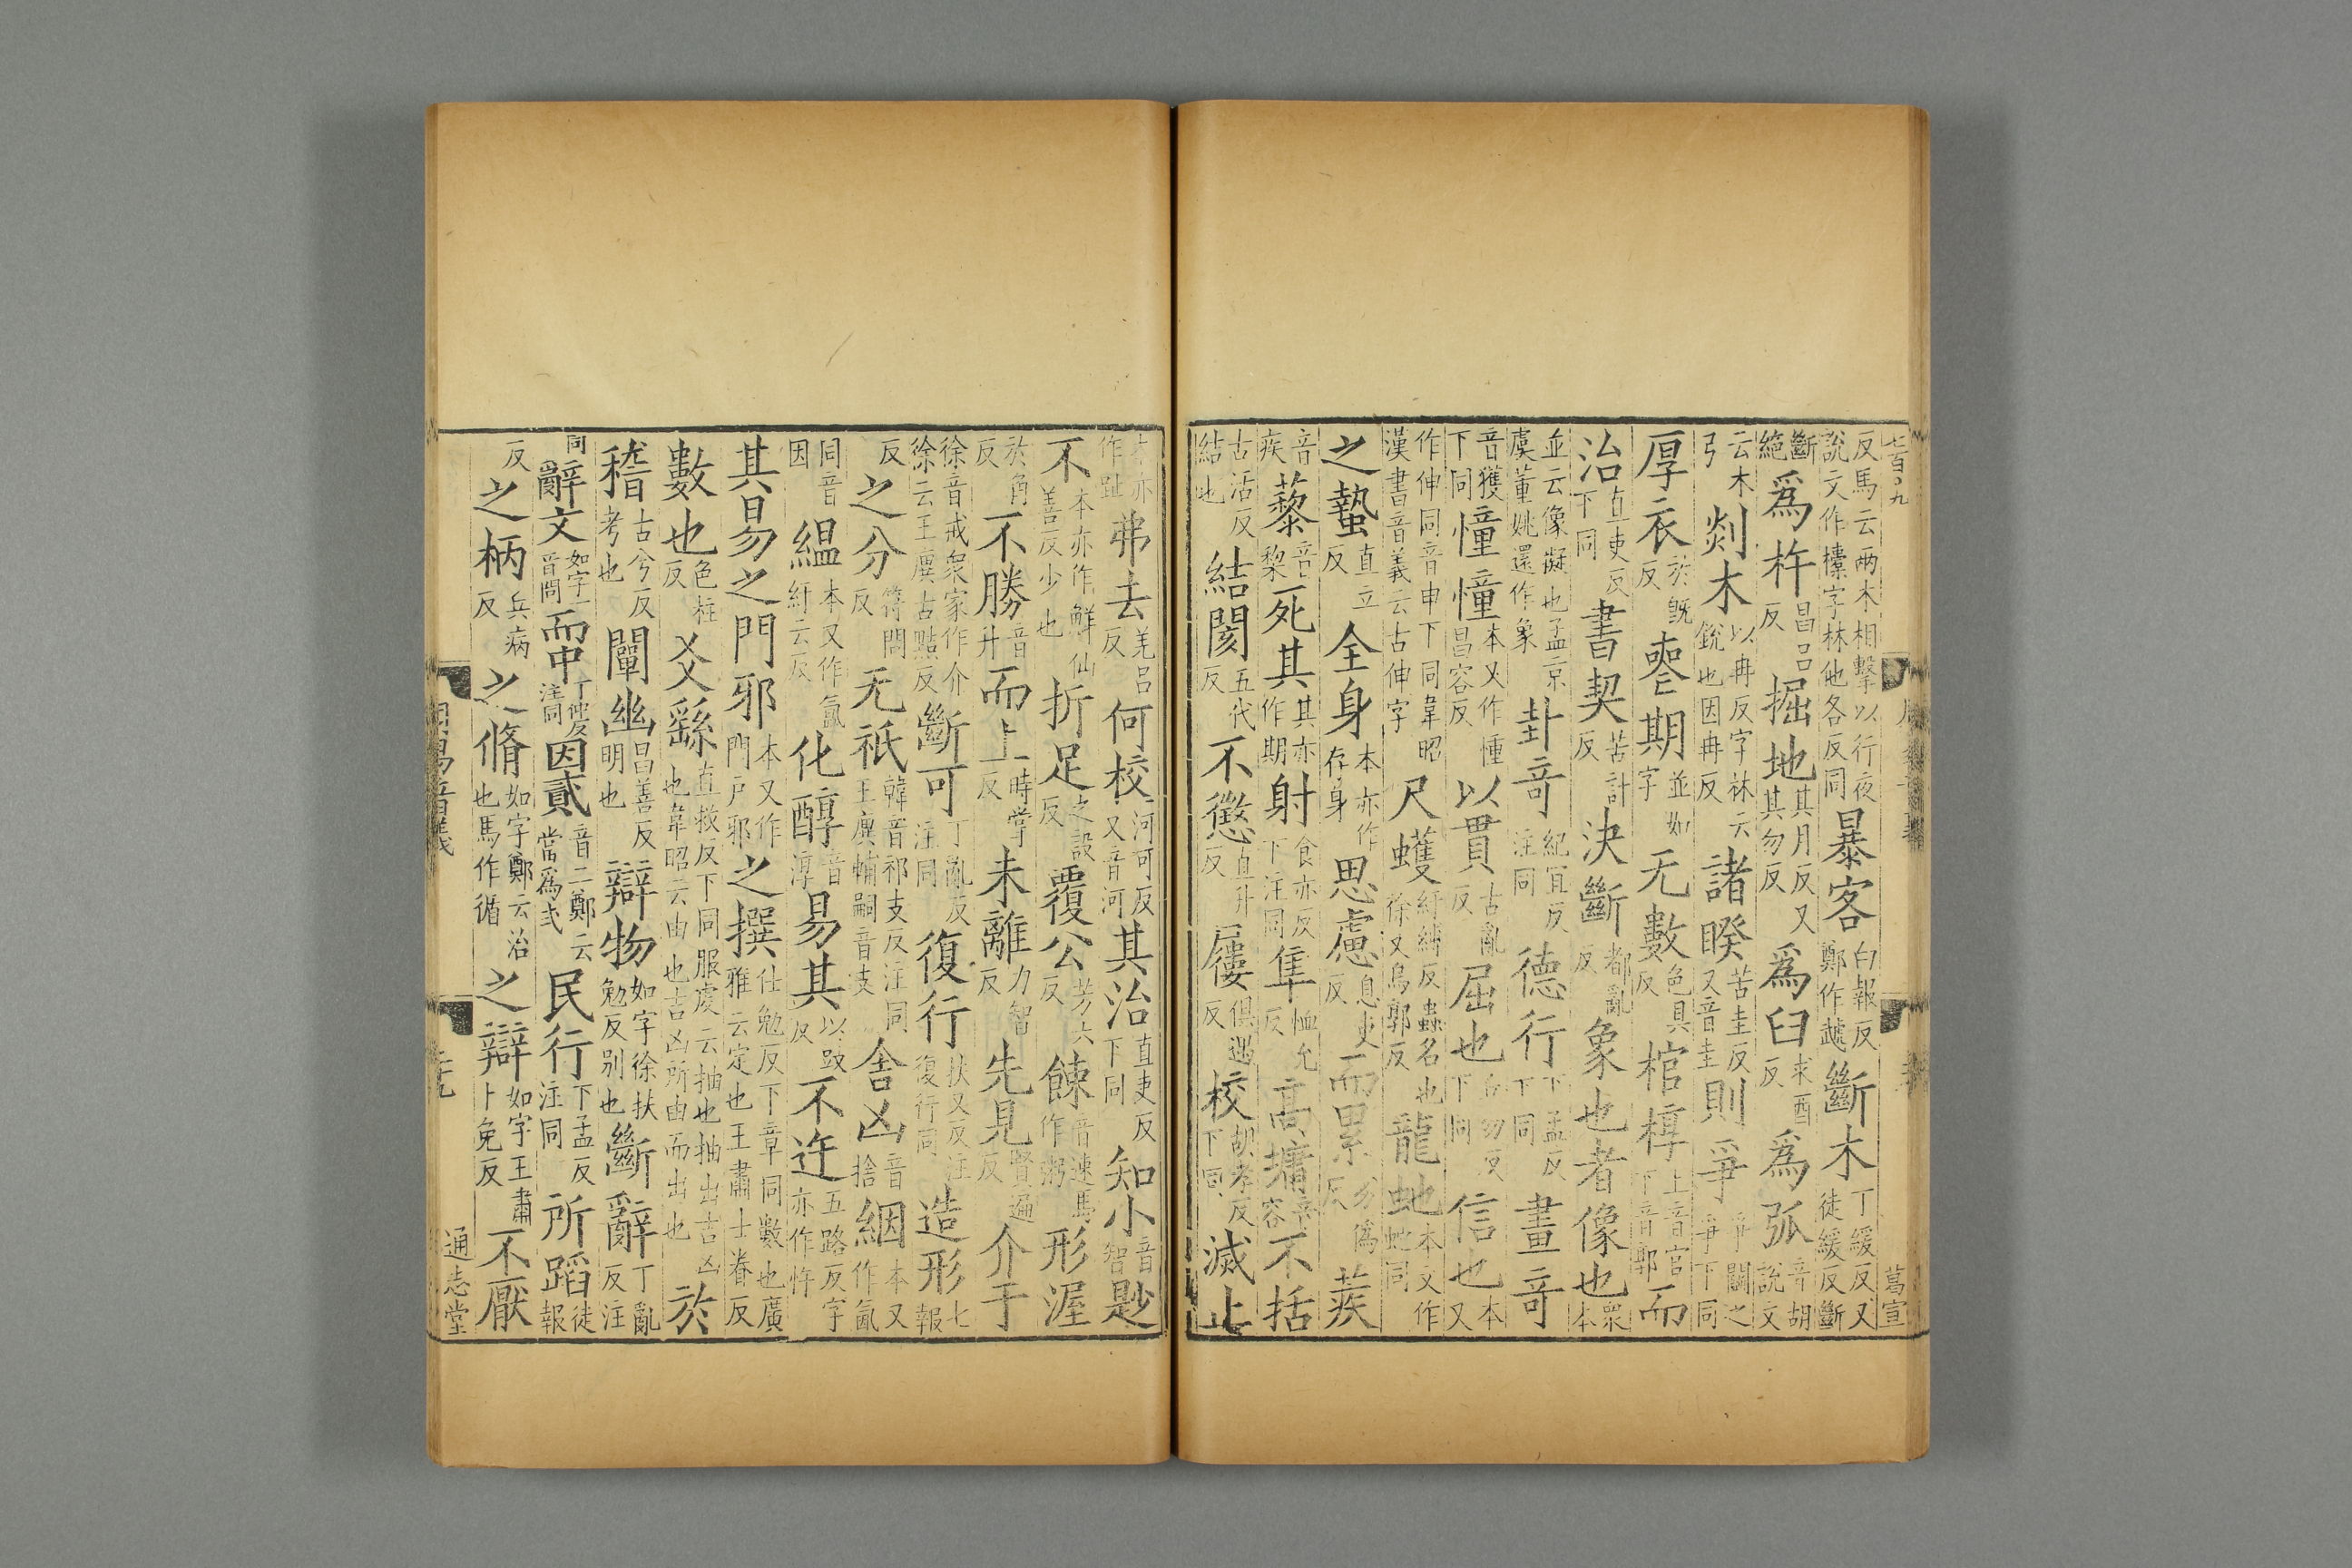 反馬云兩木相擊以行夜說文作㯓字林他各反同暴客白報反鄭作虣斷木丁緩反又徒緩反斷
斷絕爲杵昌呂反掘地其月反又其勿反爲臼求酉反爲弧音胡說文
云木弓剡木以冉反字林云銳也因冉反諸睽苦圭反又音圭則爭爭鬭之爭下同
厚衣於旣反喪期並如字无數色具反棺椁上音官下音郭而
治直吏反下同書契苦計反決斷都亂反象也者像也衆本
並云像擬也孟京虞董姚還作象卦奇紀宜反注同德行下孟反下同畫奇
音獲下同憧憧本又作㣫昌容反以貫古亂反屈也丘勿反下同信也本又
作伸同音申下同韋昭漢書音義云古伸字尺蠖紆縛反蟲名也徐又烏郭反龍虵本又作蛇同
之蟄直立反全身本亦作存身思慮息吏反而累劣僞反蒺
音疾藜音黎死其其亦作期射食亦反下注同隼恤允反高墉音容不括
古活反結也結閡五代反不懲直升反屨俱遇反校胡孝反下同滅止
本亦作趾弗去羌呂反何校河可反又音河其治直吏反下同知小音智尟
不本亦作鮮仙善反少也折足之設反覆公芳六反餗音速馬作粥形渥
於角反不勝音升而上時掌反未離力智反先見賢遍反介于
徐音戒衆家作介徐云王廙古黠反斷可丁亂反注同復行扶又反注復行同造形七報
反之分符問反无祇韓音祁支反注同王廙輔嗣音支舍凶音捨絪本又作氤
同音因縕本又作氳紆云反化醇音淳易其以豉反不迕五路反字亦作忤
其易之門邪本又作門戶邪之撰仕勉反下章同數也廣雅云定也王肅士眷反
數也色柱反爻繇直救反下同服虔云抽也抽出吉凶也韋昭云由也吉凶所由而出也於
稽古兮反考也闡幽昌善反明也辯物如字徐扶勉反別也斷辭丁亂反注
同辭文如字一音問而中丁仲反注同因貳音二鄭云當爲弍民行下孟反注同所蹈徒報
反之柄兵病反之脩如字鄭云治也馬作循之辯如字王肅卜免反不厭
通志堂
葛宣